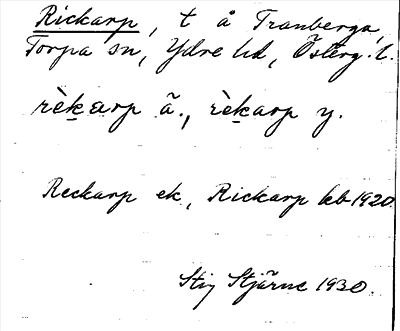 Rickarp, t å Tranberga,
Torpa sn, Ydre hd, Österg. l.
rèkarp ä., rèkarp y.
Reckarp ek, Rickarp kb 1920.
Stig Stjärne 1930.